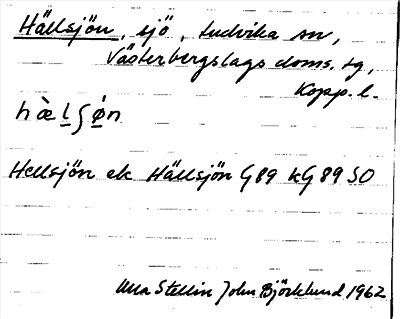 Hällsjön, sjö, Ludvika sn,
Västerbergslags doms. tg,
Kopp. l.
hæ̀lʃøn
Hellsjön ek Hällsjön G 89 kG 89 SO
Ulla Stellin John Björklund 1962